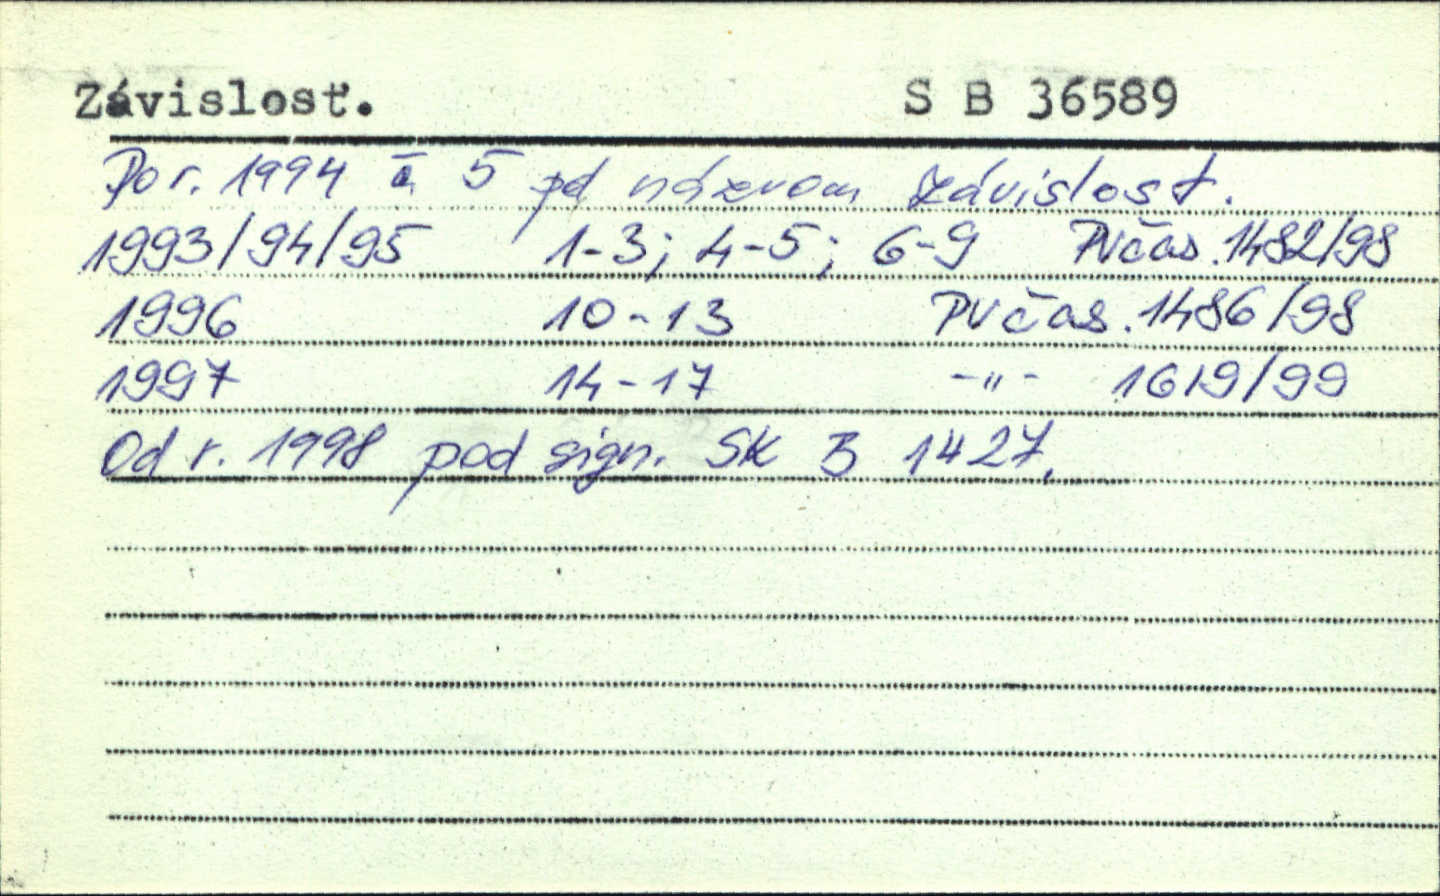 Závislosť. S B 36589
Po r. 1994 č. 5 pd názvom Závislosť.
1993/94/95 1-3; 4-5; 6-9 PVčas. 1482/98
1996 10-13 PVčas. 1486/98
1997 14-17 -"- 1619/99
Od r. 1998 pod sign. SK B 1427.